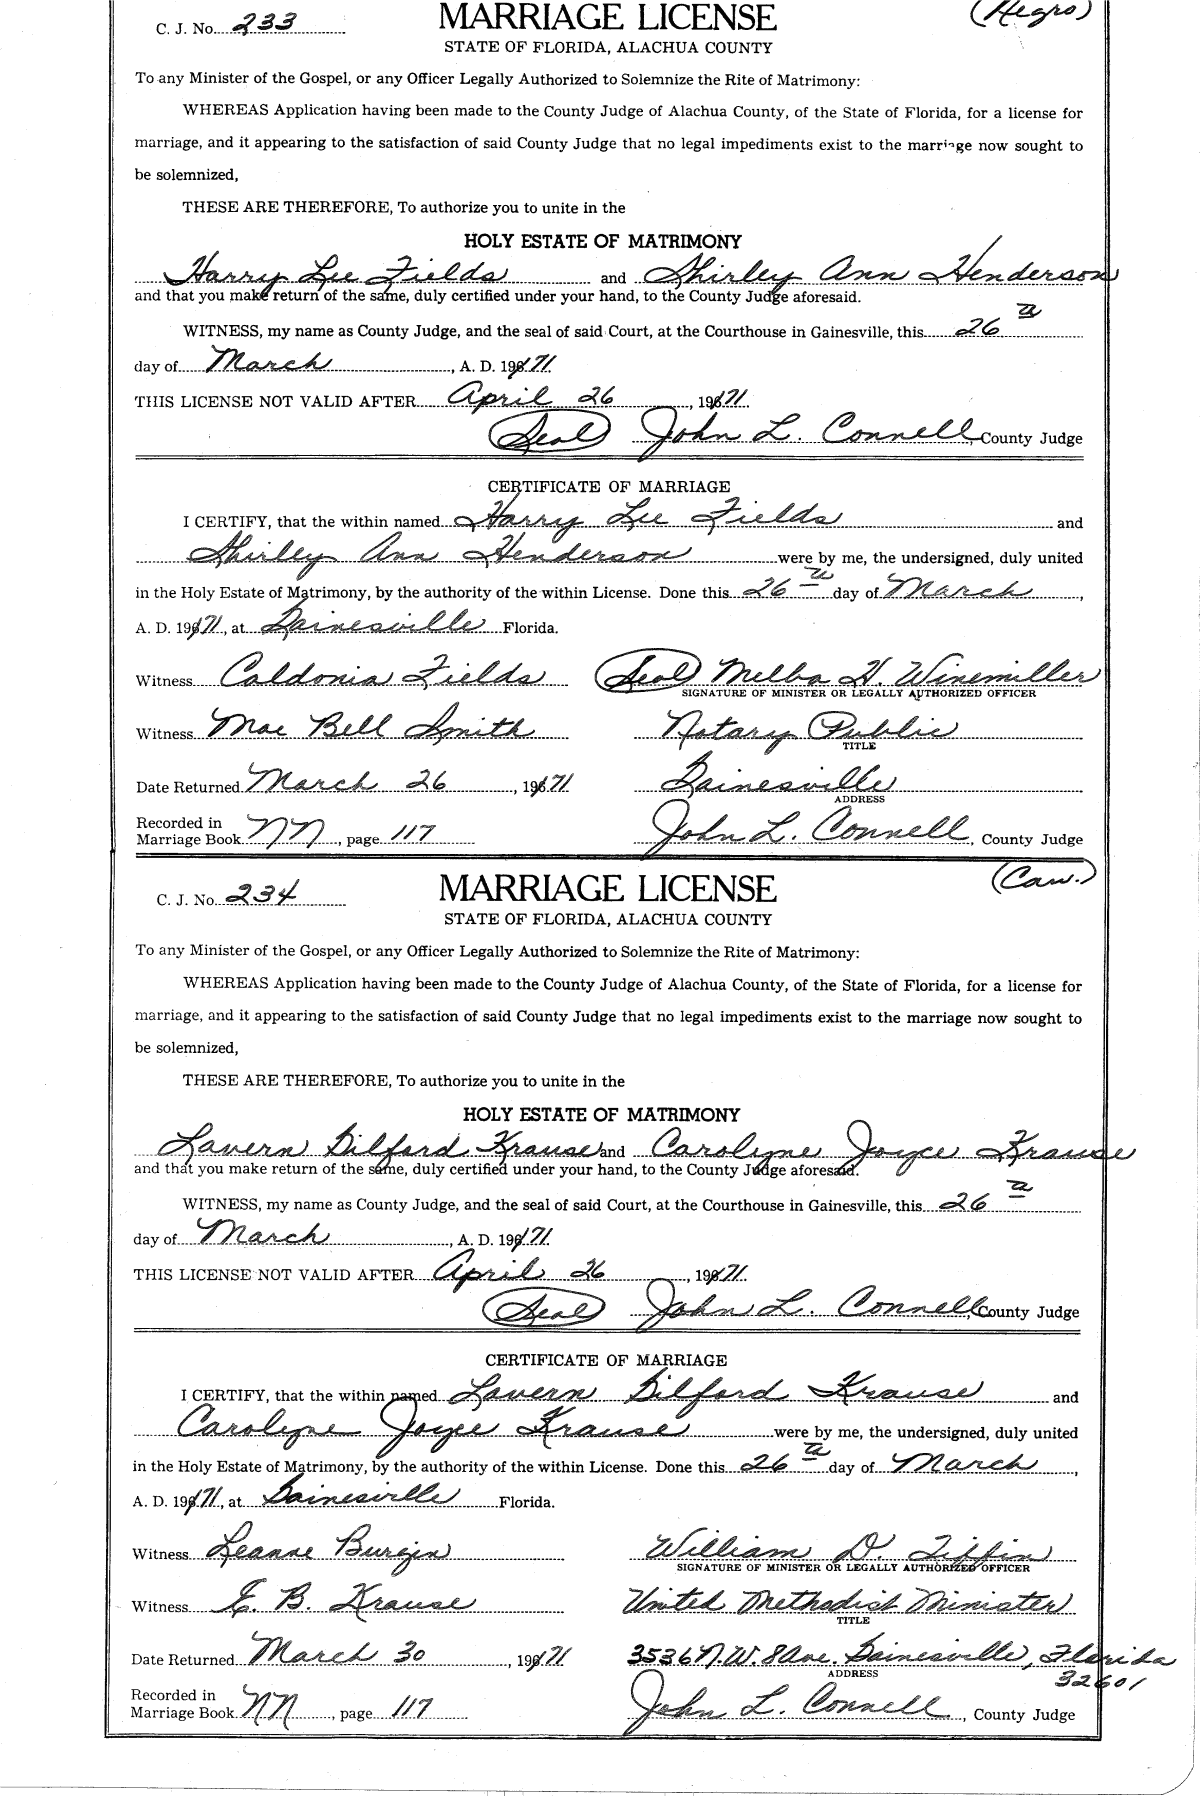 C. J. No. 233 MARRIAGE LICENSE (Negro)
STATE OF FLORIDA, ALACHUA COUNTY
To any Minister of the Gospel, or any Officer Legally Authorized to Solemnize the Rite of Matrimony:
WHEREAS Application having been made to the County Judge of Alachua County, of the State of Florida, for a license for
marriage, and it appearing to the satisfaction of said County Judge that no legal impediments exist to the marriage now sought to
be solemnized,
THESE ARE THEREFORE, To authorize you to unite in the
HOLY ESTATE OF MATRIMONY
Harry Lee Fields and Shirley Ann Henderson
and that you make return of the same, duly certified under your hand, to the County Judge aforesaid.
WITNESS, my name as County Judge, and the seal of said Court, at the Courthouse in Gainesville, this 26th
day of March, A. D. 1971.
THIS LICENSE NOT VALID AFTER April 26, 1971.
(Seal) John L. Connell, County Judge
CERTIFICATE OF MARRIAGE
I CERTIFY, that the within named Harry Lee Fields and
Shirley Ann Henderson were by me, the undersigned, duly united
in the Holy Estate of Matrimony, by the authority of the within License. Done this 26th day of March,
A. D. 1971, at Gainesville Florida.
Witness Caldonia Fields (Seal) Melba H. Winemiller
SIGNATURE OF MINISTER OR LEGALLY AUTHORIZED OFFICER
Witness Mae Bell Smith Notary Public
TITLE
Date Returned March 26, 1971 Gainesville
ADDRESS
Recorded in
Marriage Book NN, page 117 John L. Connell, County Judge
C. J. No. 234 MARRIAGE LICENSE (Cau.)
STATE OF FLORIDA, ALACHUA COUNTY
To any Minister of the Gospel, or any Officer Legally Authorized to Solemnize the Rite of Matrimony:
WHEREAS Application having been made to the County Judge of Alachua County, of the State of Florida, for a license for
marriage, and it appearing to the satisfaction of said County Judge that no legal impediments exist to the marriage now sought to
be solemnized,
THESE ARE THEREFORE, To authorize you to unite in the
HOLY ESTATE OF MATRIMONY
Lavern Gilford Krause and Carolyne Joyce Krause
and that you make return of the same, duly certified under your hand, to the County Judge aforesaid.
WITNESS, my name as County Judge, and the seal of said Court, at the Courthouse in Gainesville, this 26th
day of March, A. D. 1971.
THIS LICENSE NOT VALID AFTER April 26, 1971.
(Seal) John L. Connell, County Judge
CERTIFICATE OF MARRIAGE
I CERTIFY, that the within named Lavern Gilford Krause and
Carolyne Joyce Krause were by me, the undersigned, duly united
in the Holy Estate of Matrimony, by the authority of the within License. Done this 26th day of March,
A. D. 1971, at Gainesville Florida.
Witness Leanne Burgin William D. Tiffin
SIGNATURE OF MINISTER OR LEGALLY AUTHORIZED OFFICER
Witness E. B. Krause United Methodist Minister
TITLE
Date Returned March 30, 1971 3536 N.W. 8 Ave. Gainesville, Florida
ADDRESS 32601
Recorded in
Marriage Book NN, page 117 John L. Connell, County Judge